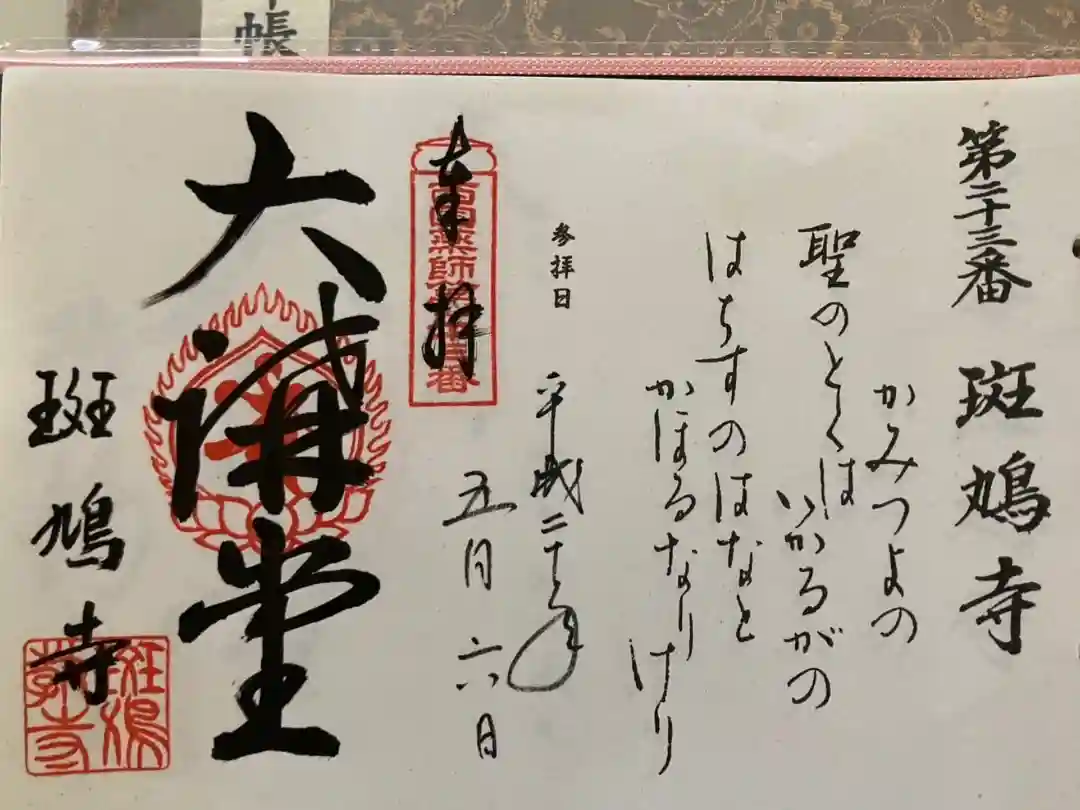 帳
第二十三番 斑鳩寺
かみつよの
聖のとくは
いかるがの
はちすのはなと
かほるなりけり
参拝日
平成二十年
五月六日
奉拝
大講堂
斑鳩寺
斑鳩寺